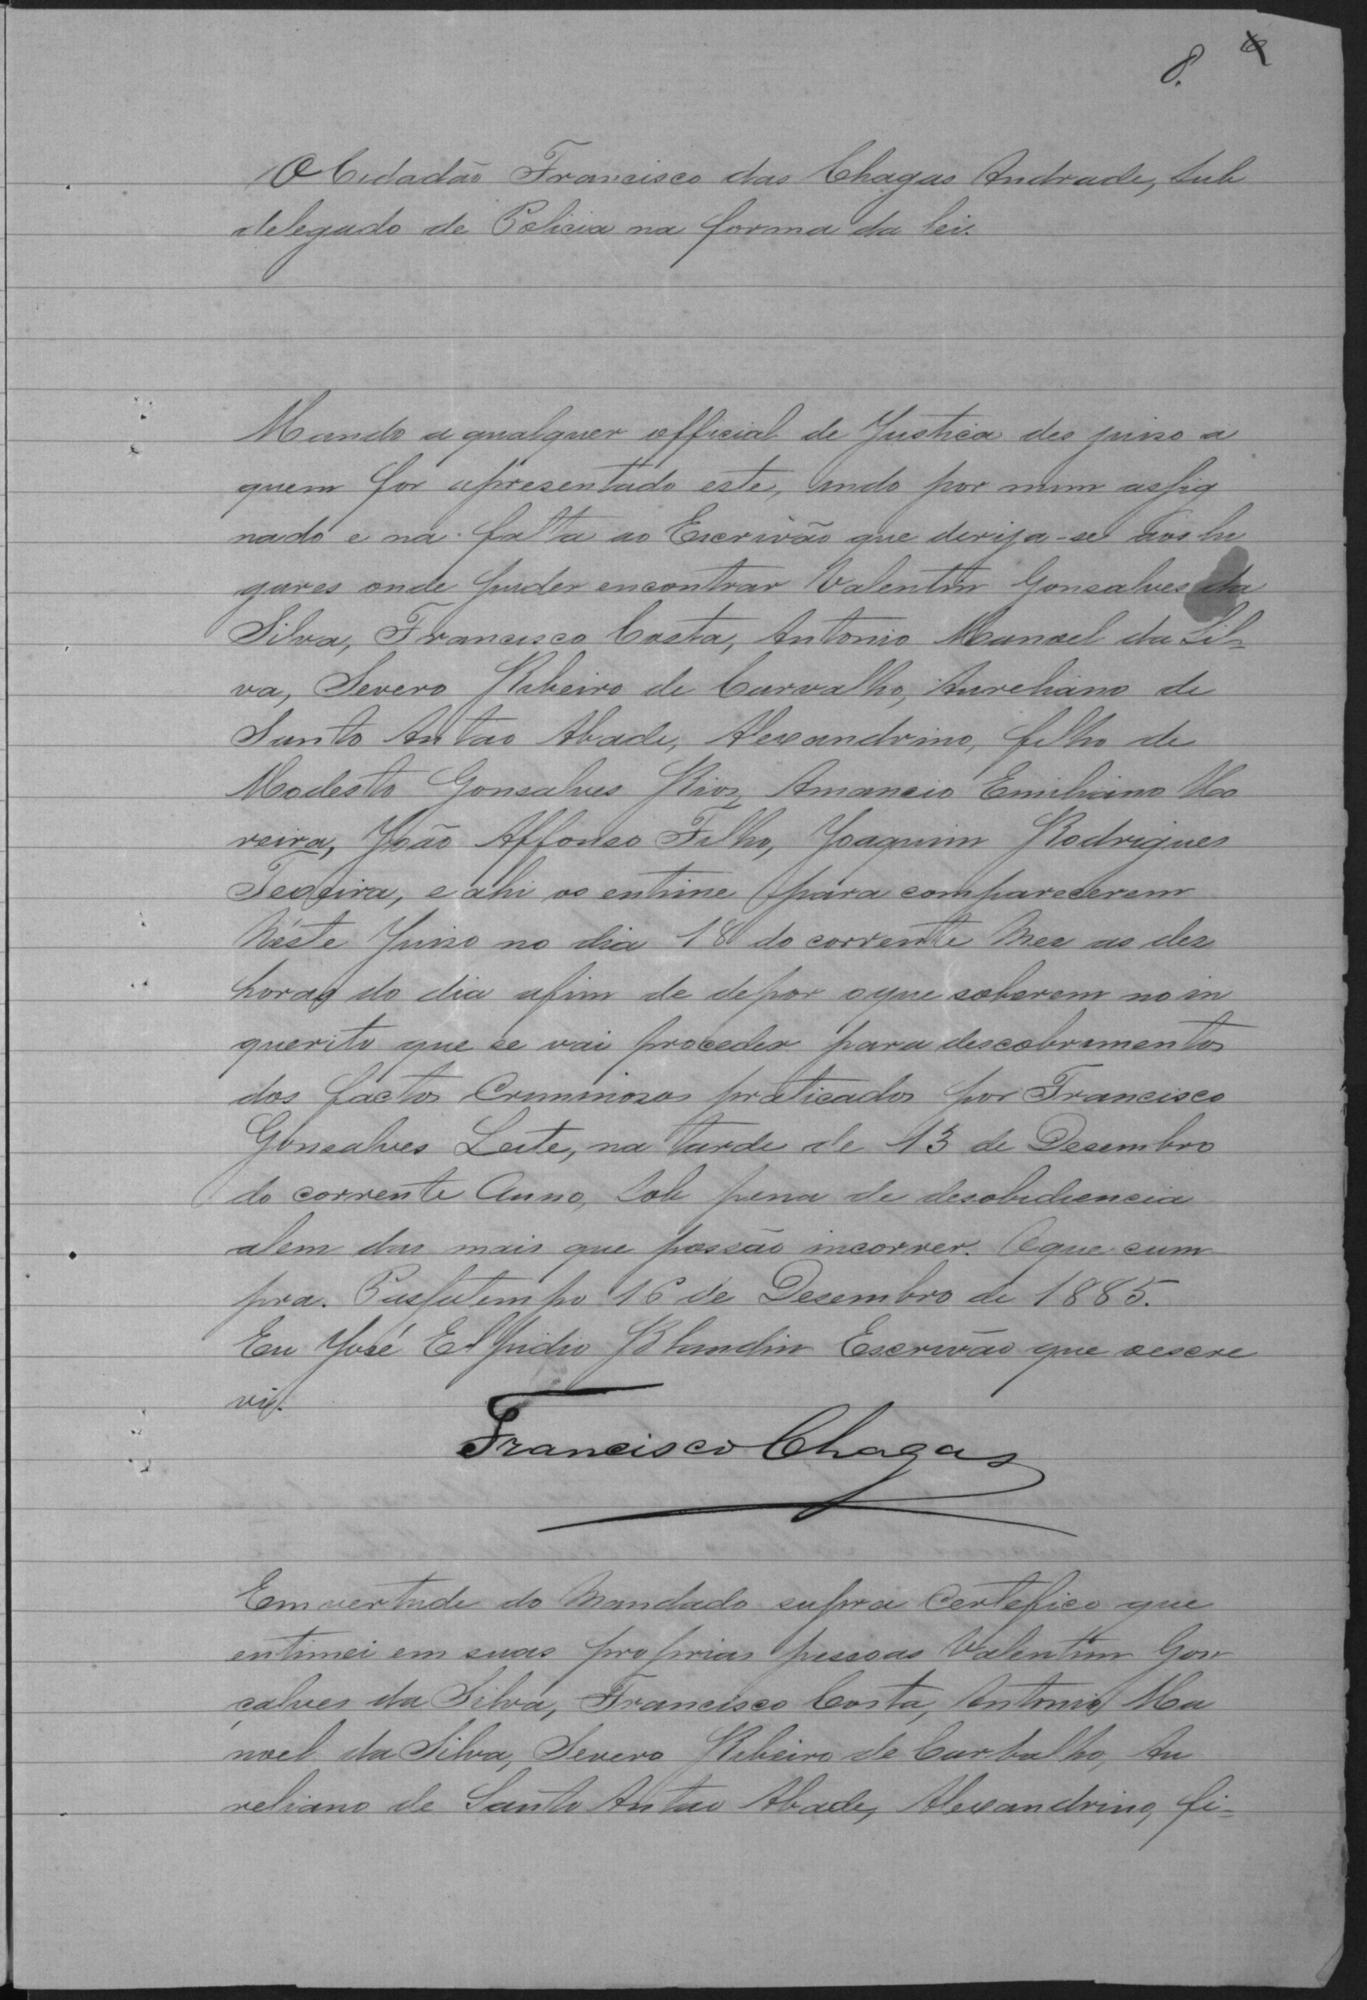 8.
O Cidadão Francisco das Chagas Andrade, Sub
delegado de Policia na forma da lei.
Mando a qualquer official de Justica des juiso a
quem for apresentado este, indo por mim assig
nado e na falta ao Escrivão que derija-se aos lu
gares onde puder encontrar Valentin Gonsalves da
Silva, Francisco Costa, Antonio Manoel da Sil-
va, Severo Ribeiro de Carvalho, Aureliano de
Santo Antao Abade, Alexandrino, filho de
Modesto Gonsalves Rios, Amancio Emiliano Mo
reira, João Affonso Filho, Joaquim Rodrigues
Texeira, e ahi os entime para comparecerem
Néste Juiso no dia 18 do corrente Mez as dez
horas do dia afim de depor oque soberem no in
querito que se vai proceder para descobrimentos
dos factos Criminosos praticados por Francisco
Gonsalves Leite, na tarde de 13 de Desembro
do corrente Anno, Sob pena de desobidiencia
alem das mais que possão incorrer. Oque cum
pra. 16 de Desembro de 1885.
Eu José Elpidio Blandin Escrivão que oescre
vi.
Francisco Chagas
Em vertude do Mandado supra Certefico que
entimei em suas proprias pessoas Valentim Gon
çalves da Silva, Francisco Costa, Antonio Ma
noel da Silva, Severo Ribeiro de Carbalho, Au
reliano de Santo Antao Abade, Alexandrino, fi=